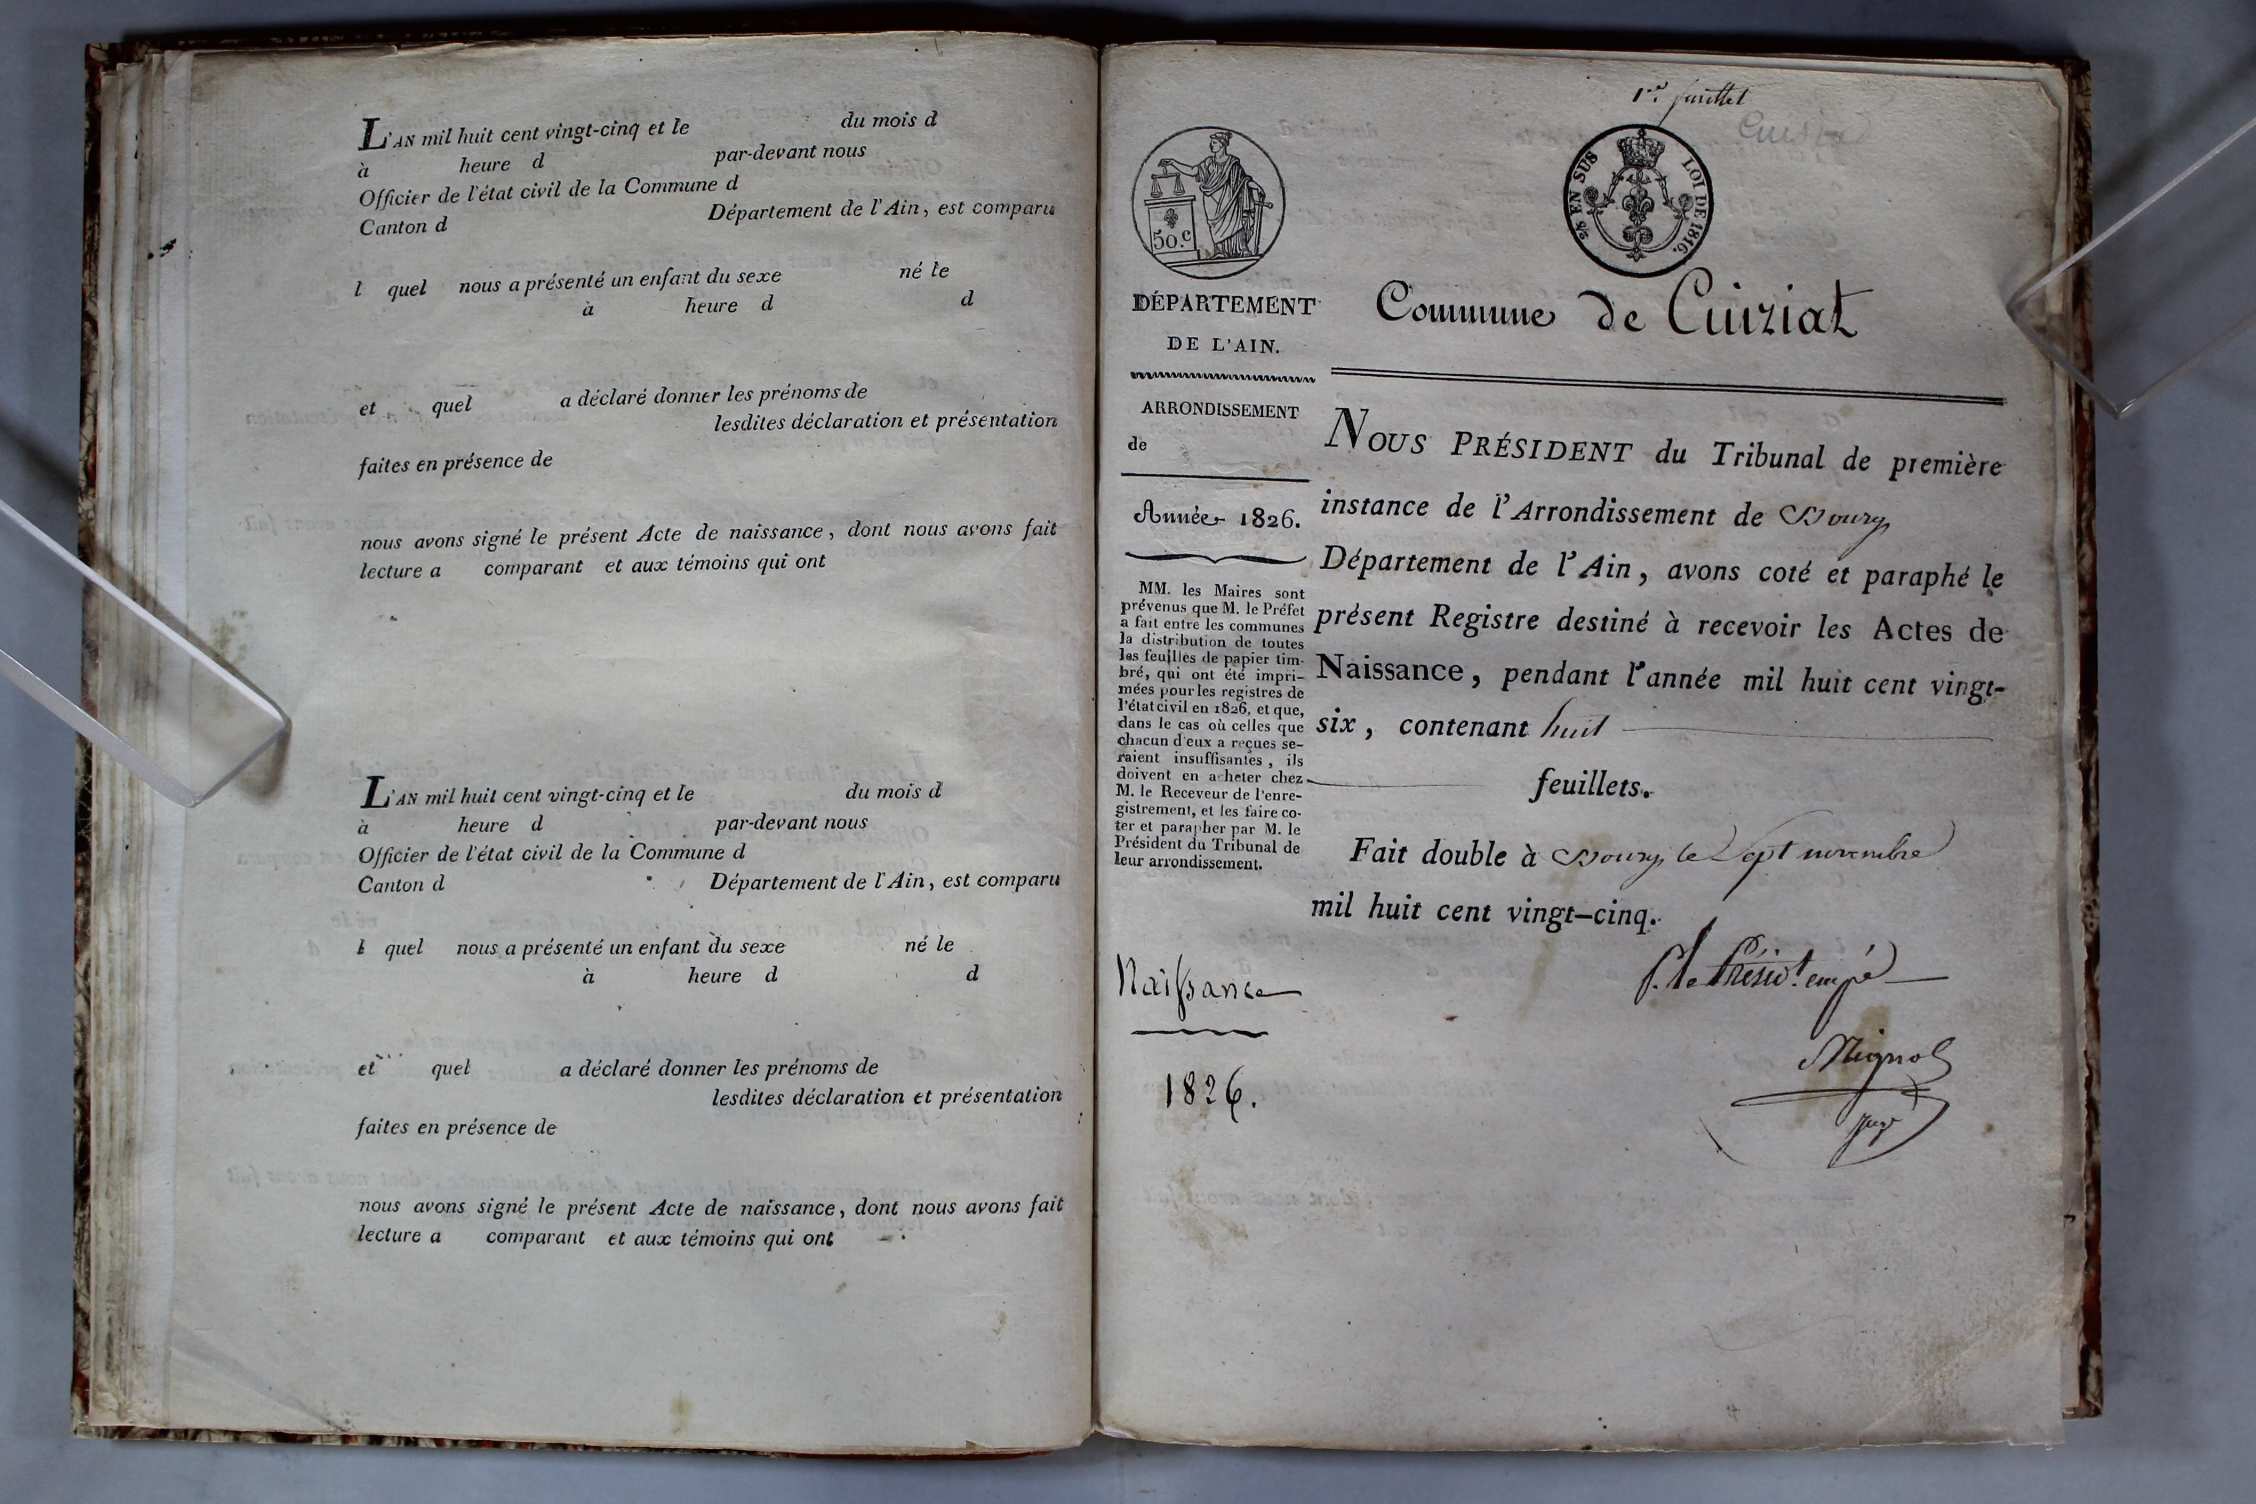 L'AN mil huit cent vingt-cinq et le du mois d
à heure d par-devant nous
Officier de l'état civil de la Commune d
Canton d Département de l'Ain, est comparu
l quel nous a présenté un enfant du sexe né le
à heure d d
et quel a déclaré donner les prénoms de
lesdites déclaration et présentation
faites en présence de
nous avons signé le présent Acte de naissance, dont nous avons fait
lecture a comparant et aux témoins qui ont
L'AN mil huit cent vingt-cinq et le du mois d
à heure d par-devant nous
Officier de l'état civil de la Commune d
Canton d Département de l'Ain, est comparu
l quel nous a présenté un enfant du sexe né le
à heure d d
et quel a déclaré donner les prénoms de
lesdites déclaration et présentation
faites en présence de
nous avons signé le présent Acte de naissance, dont nous avons fait
lecture a comparant et aux témoins qui ont
1er feuillet
EN SUS LOI DE 1816.
50.c
DÉPARTEMENT
DE L'AIN.
ARRONDISSEMENT
de
Année 1826.
MM. les Maires sont
prévenus que M. le Préfet
a fait entre les communes
la distribution de toutes
les feuilles de papier tim-
bré, qui ont été impri-
mées pour les registres de
l'état civil en 1826, et que,
dans le cas où celles que
chacun d'eux a reçues se-
raient insuffisantes, ils
doivent en acheter chez
M. le Receveur de l'enre-
gistrement, et les faire co-
ter et parapher par M. le
Président du Tribunal de
leur arrondissement.
Naissance
1826.
Commune de Cuiziat
NOUS PRÉSIDENT du Tribunal de première
instance de l'Arrondissement de Bourg
Département de l'Ain, avons coté et paraphé le
présent Registre destiné à recevoir les Actes de
Naissance, pendant l'année mil huit cent vingt-
six, contenant huit
feuillets.
Fait double à Bourg le Sept novembre
mil huit cent vingt-cinq.
P. le Présidt. empé
Mignot
juge